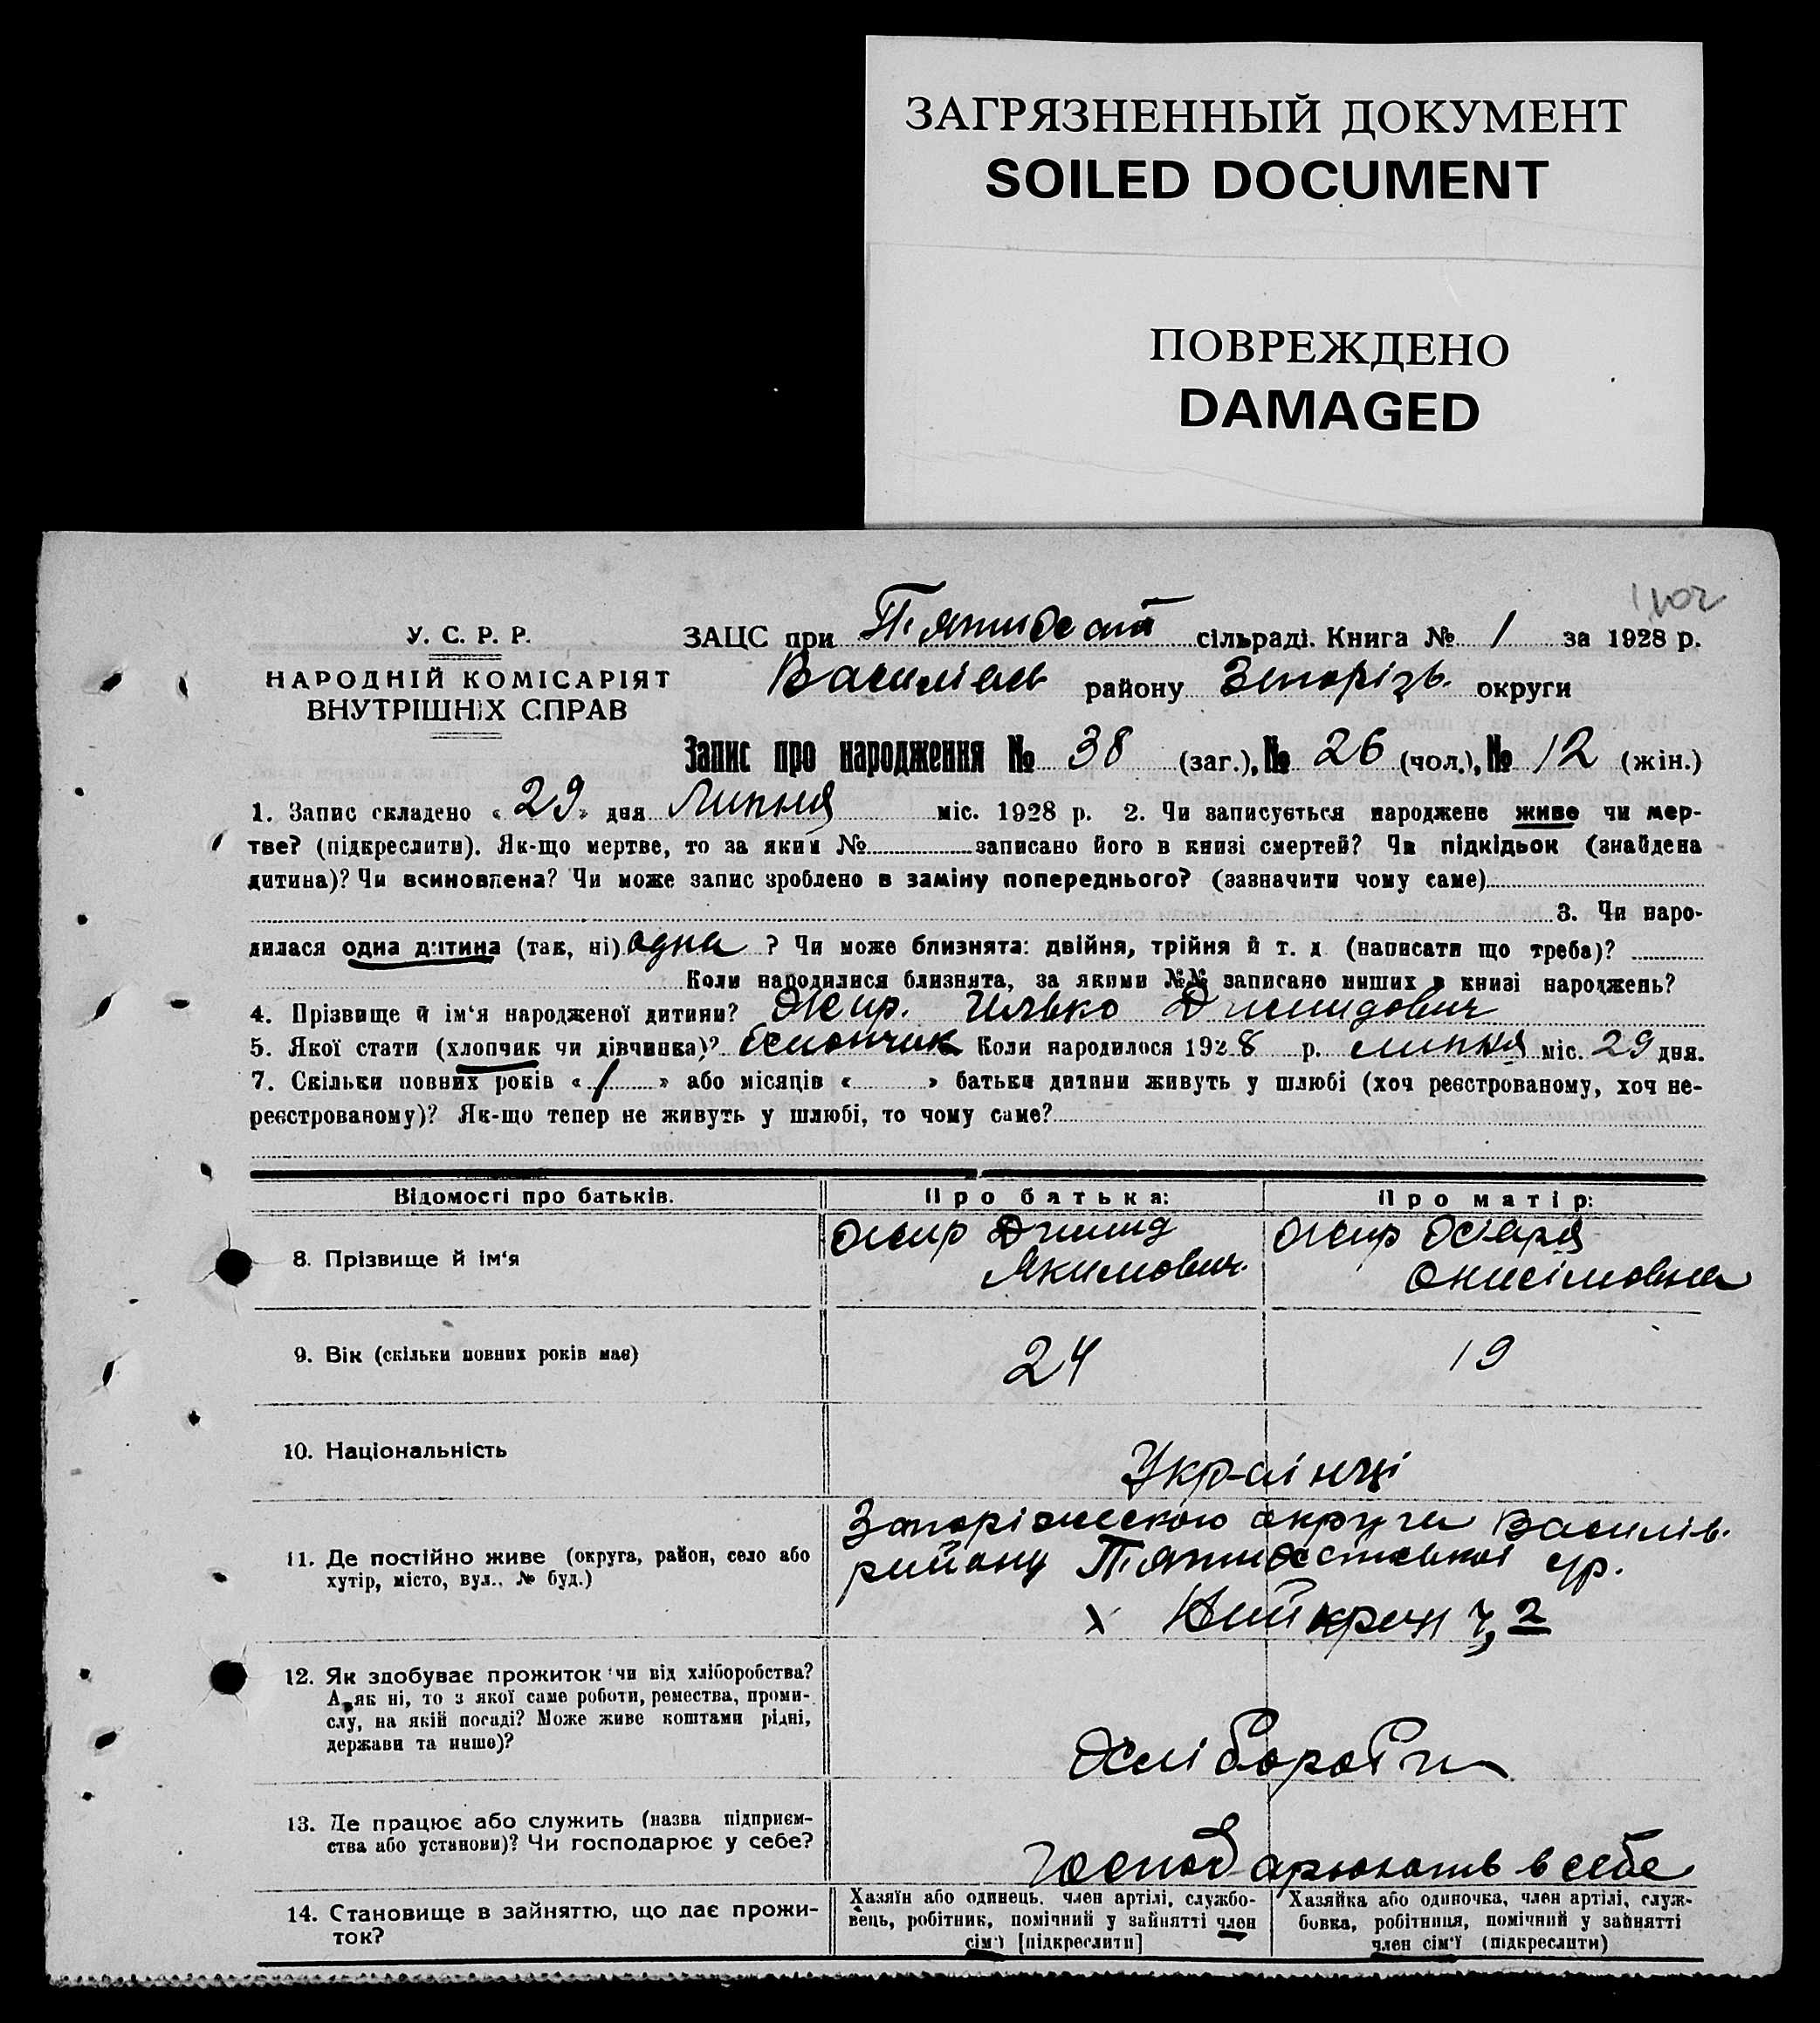 ЗАГРЯЗНЕННЫЙ ДОКУМЕНТ
SOILED DOCUMENT
ПОВРЕЖДЕНО
DAMAGED
У. С. Р. Р.
НАРОДНІЙ КОМІСАРІЯТ
ВНУТРІШНІХ СПРАВ
ЗАЦС при П'ятихат сільраді. Книга № 1 за 1928 р.
Василів району Запорізь. округи
Запис про народження № 38 (заг.), № 26 (чол.), № 12 (жін.)
1. Запис складено « 29 » дня Липня міс. 1928 р. 2. Чи записується народжене живе чи мер-
тве? (підкреслити). Як-що мертве, то за яким № записано його в книзі смертей? Чи підкідьок (знайдена
дитина)? Чи всиновлена? Чи може запис зроблено в заміну попереднього? (зазначити чому саме)
3. Чи наро-
дилася одна дитина (так, ні) одна ? Чи може близнята: двійня, трійня й т. д. (написати що треба)?
Коли народилися близнята, за якими №№ записано инших в книзі народжень?
4. Прізвище й ім'я народженої дитини? Жир. Ілько Димидович
5. Якої стати (хлопчик чи дівчинка)? хлопчик Коли народилося 1928 р. липня міс. 29 дня.
7. Скільки повних років « 1 » або місяців « » батьки дитини живуть у шлюбі (хоч реєстрованому, хоч не-
реєстрованому)? Як-що тепер не живуть у шлюбі, то чому саме?
Відомості про батьків.
Про батька:
Про матір:
8. Прізвище й ім'я
Жир Димид
Якимович
Жир
Онисімовна
9. Вік (скільки повних років має)
24
19
10. Національність
Українці
11. Де постійно живе (округа, район, село або
хутір, місто, вул., № буд.)
Запоріжською округи Василів.
району П'ятихатської
х Нейкрон ч, 2
12. Як здобуває прожиток чи від хліборобства?
А як ні, то з якої саме роботи, ремества, проми-
слу, на якій посаді? Може живе коштами рідні,
держави та инше)?
Хлібороби
13. Де працює або служить (назва підприєм-
ства або установи)? Чи господарює у себе?
Господарюють в себе
14. Становище в зайняттю, що дає прожи-
ток?
Хазяїн або одинець, член артілі, службо-
вець, робітник, помічний у зайнятті член
сім'ї [підкреслити]
Хазяйка або одиночка, член артілі, служ-
бовка, робітниця, помічний у зайнятті
член сім'ї (підкреслити)